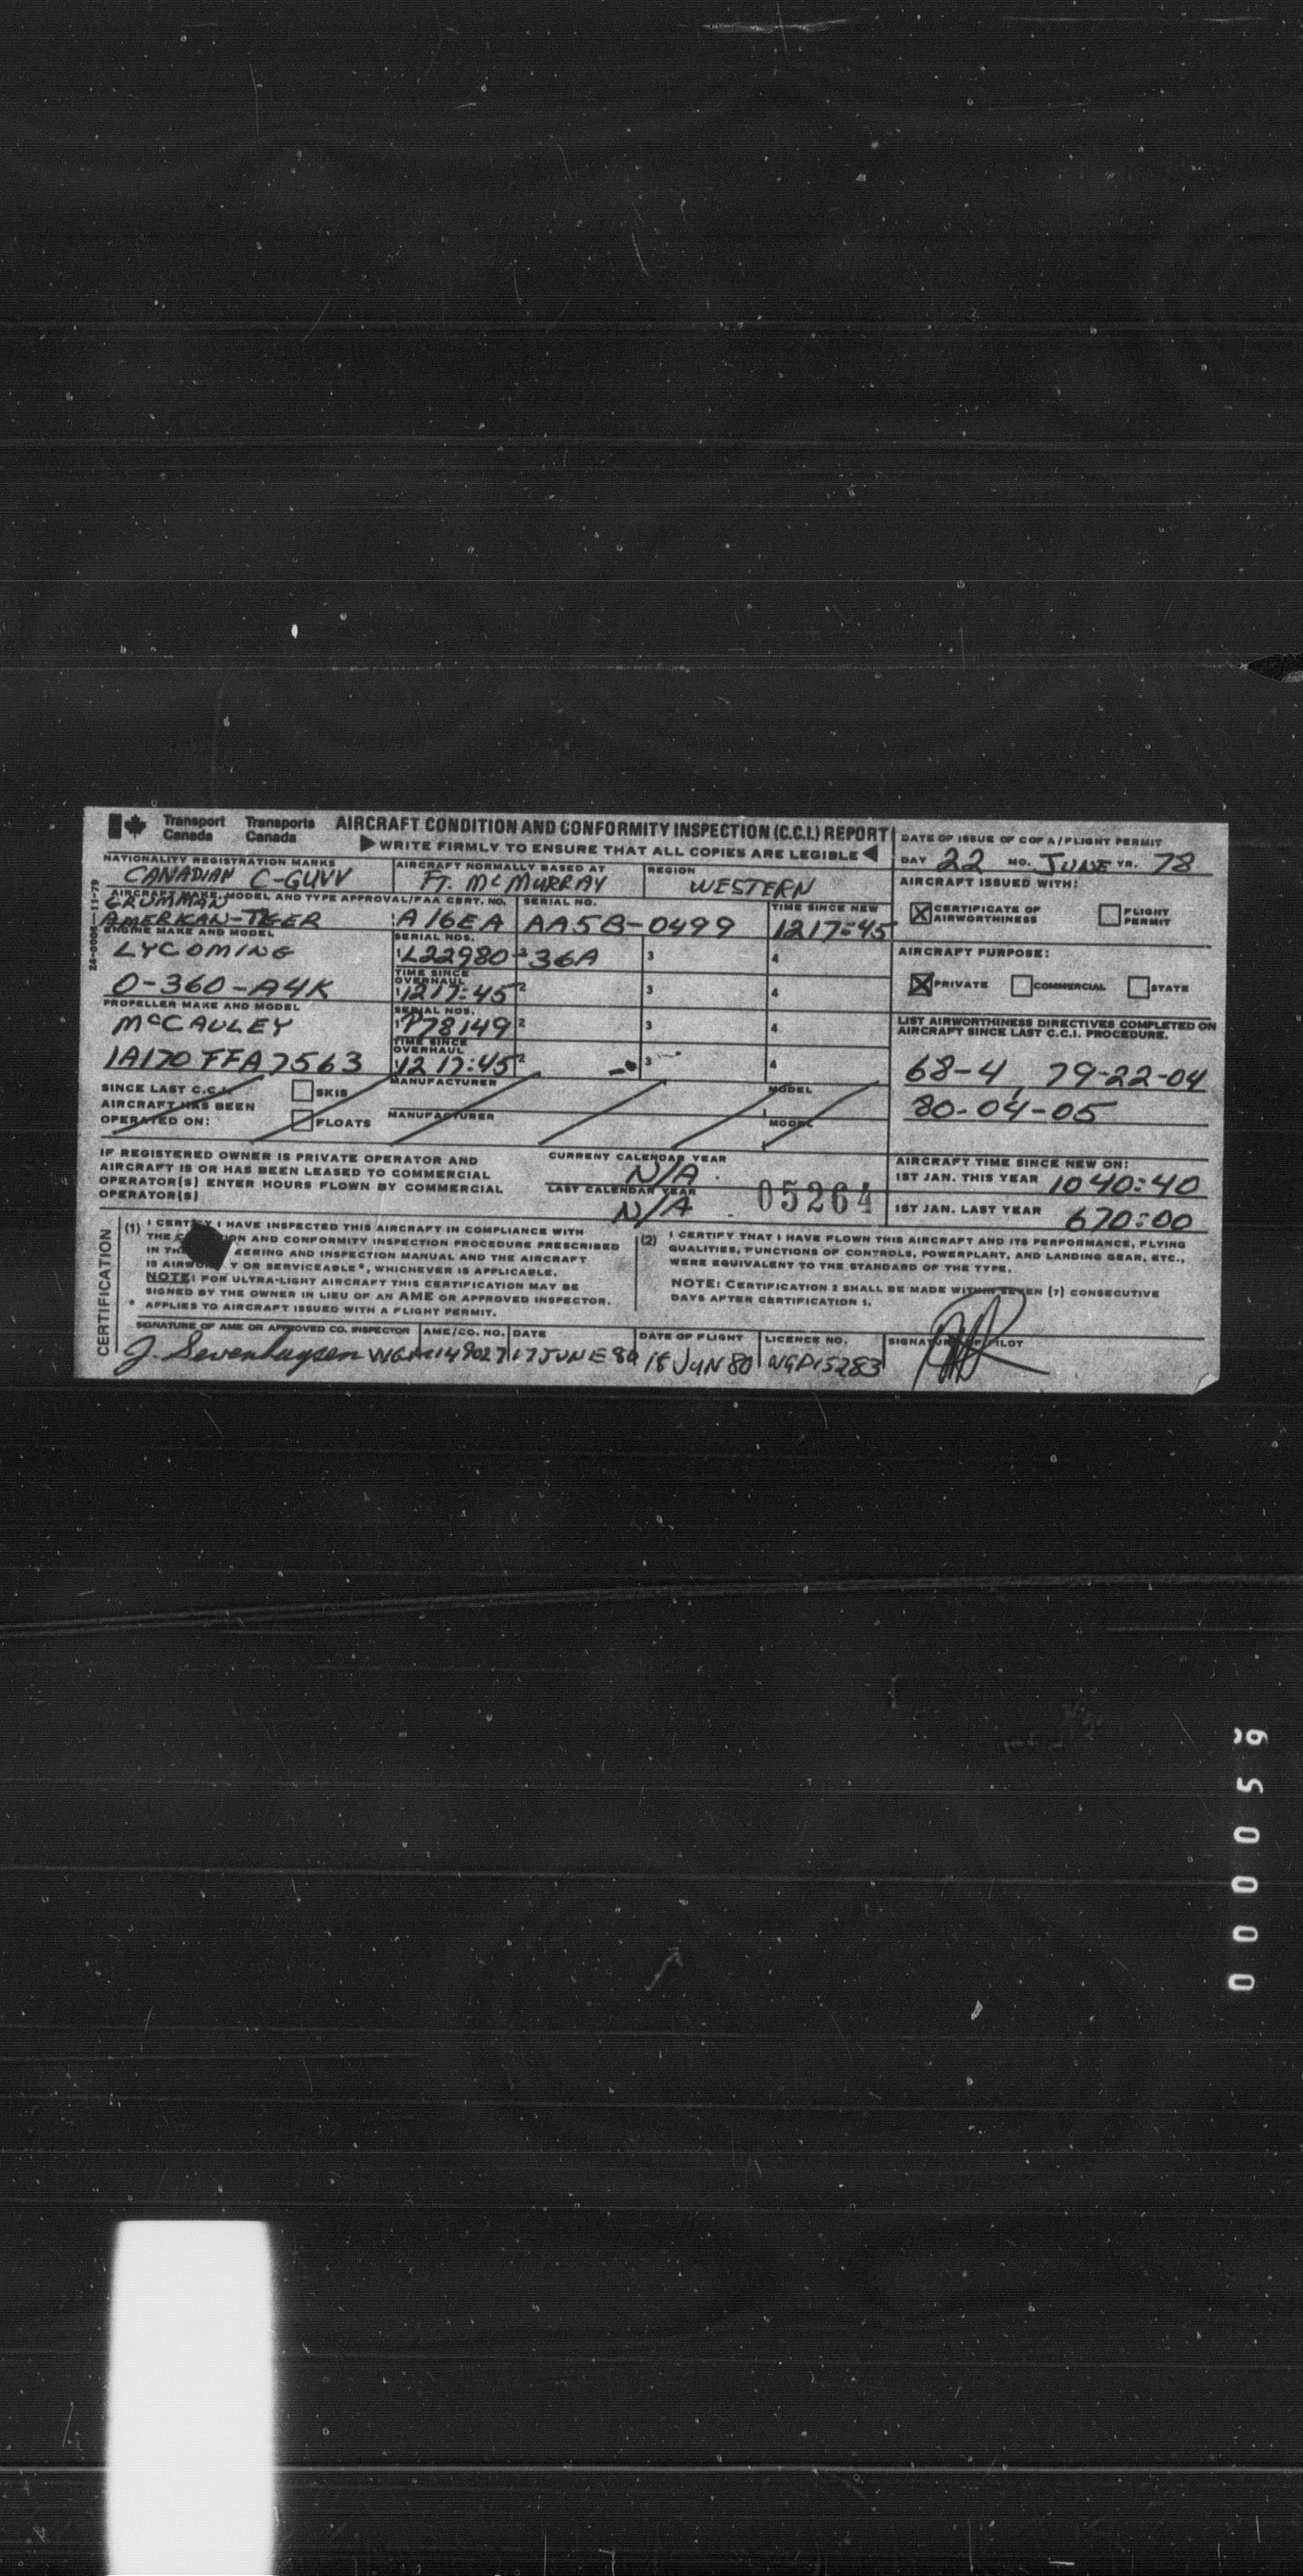 Transport Canada Transports Canada
AIRCRAFT CONDITION AND CONFORMITY INSPECTION (C.C.I.) REPORT
▶WRITE FIRMLY TO ENSURE THAT ALL COPIES ARE LEGIBLE◀
DATE OF ISSUE OF C OF A/FLIGHT PERMIT
DAY 22 MO. JUNE YR. 78
NATIONALITY REGISTRATION MARKS
CANADIAN C-GUVV
AIRCRAFT NORMALLY BASED AT
FT. McMURRAY
REGION
WESTERN
AIRCRAFT ISSUED WITH:
☒ CERTIFICATE OF AIRWORTHINESS ☐ FLIGHT PERMIT
AIRCRAFT MAKE, MODEL AND TYPE APPROVAL/FAA CERT. NO.
GRUMMAN
AMERICAN-TIGER A16EA
SERIAL NO.
AA5B-0499
TIME SINCE NEW
1217:45
24-0006-11-79
ENGINE MAKE AND MODEL
LYCOMING
O-360-A4K
SERIAL NOS.
1 L22980-36A 2 3 4
TIME SINCE OVERHAUL
1 1217:45 2 3 4
AIRCRAFT PURPOSE:
☒ PRIVATE ☐ COMMERCIAL ☐ STATE
PROPELLER MAKE AND MODEL
McCAULEY
1A170 FFA7563
SERIAL NOS.
1 P78149 2 3 4
TIME SINCE OVERHAUL
1 1217:45 2 3 4
LIST AIRWORTHINESS DIRECTIVES COMPLETED ON
AIRCRAFT SINCE LAST C.C.I. PROCEDURE.
68-4, 79-22-04
80-04-05
SINCE LAST C.C.I.
AIRCRAFT HAS BEEN
OPERATED ON:
☐ SKIS
☐ FLOATS
MANUFACTURER MODEL
MANUFACTURER MODEL
IF REGISTERED OWNER IS PRIVATE OPERATOR AND
AIRCRAFT IS OR HAS BEEN LEASED TO COMMERCIAL
OPERATOR(S) ENTER HOURS FLOWN BY COMMERCIAL
OPERATOR(S)
CURRENT CALENDAR YEAR
N/A
LAST CALENDAR YEAR
N/A
05264
AIRCRAFT TIME SINCE NEW ON:
1ST JAN. THIS YEAR 1040:40
1ST JAN. LAST YEAR 670:00
CERTIFICATION
(1) I CERTIFY I HAVE INSPECTED THIS AIRCRAFT IN COMPLIANCE WITH
THE CONDITION AND CONFORMITY INSPECTION PROCEDURE PRESCRIBED
IN THE ENGINEERING AND INSPECTION MANUAL AND THE AIRCRAFT
IS AIRWORTHY OR SERVICEABLE*, WHICHEVER IS APPLICABLE.
NOTE: FOR ULTRA-LIGHT AIRCRAFT THIS CERTIFICATION MAY BE
SIGNED BY THE OWNER IN LIEU OF AN AME OR APPROVED INSPECTOR.
* APPLIES TO AIRCRAFT ISSUED WITH A FLIGHT PERMIT.
(2) I CERTIFY THAT I HAVE FLOWN THIS AIRCRAFT AND ITS PERFORMANCE, FLYING
QUALITIES, FUNCTIONS OF CONTROLS, POWERPLANT, AND LANDING GEAR, ETC.,
WERE EQUIVALENT TO THE STANDARD OF THE TYPE.
NOTE: CERTIFICATION 2 SHALL BE MADE WITHIN SEVEN (7) CONSECUTIVE
DAYS AFTER CERTIFICATION 1.
SIGNATURE OF AME OR APPROVED CO. INSPECTOR AME/CO. NO. DATE DATE OF FLIGHT LICENCE NO. SIGNATURE OF PILOT
J. Sevenhuysen 17 JUNE 80 18 JUN 80 WGP15283
000059